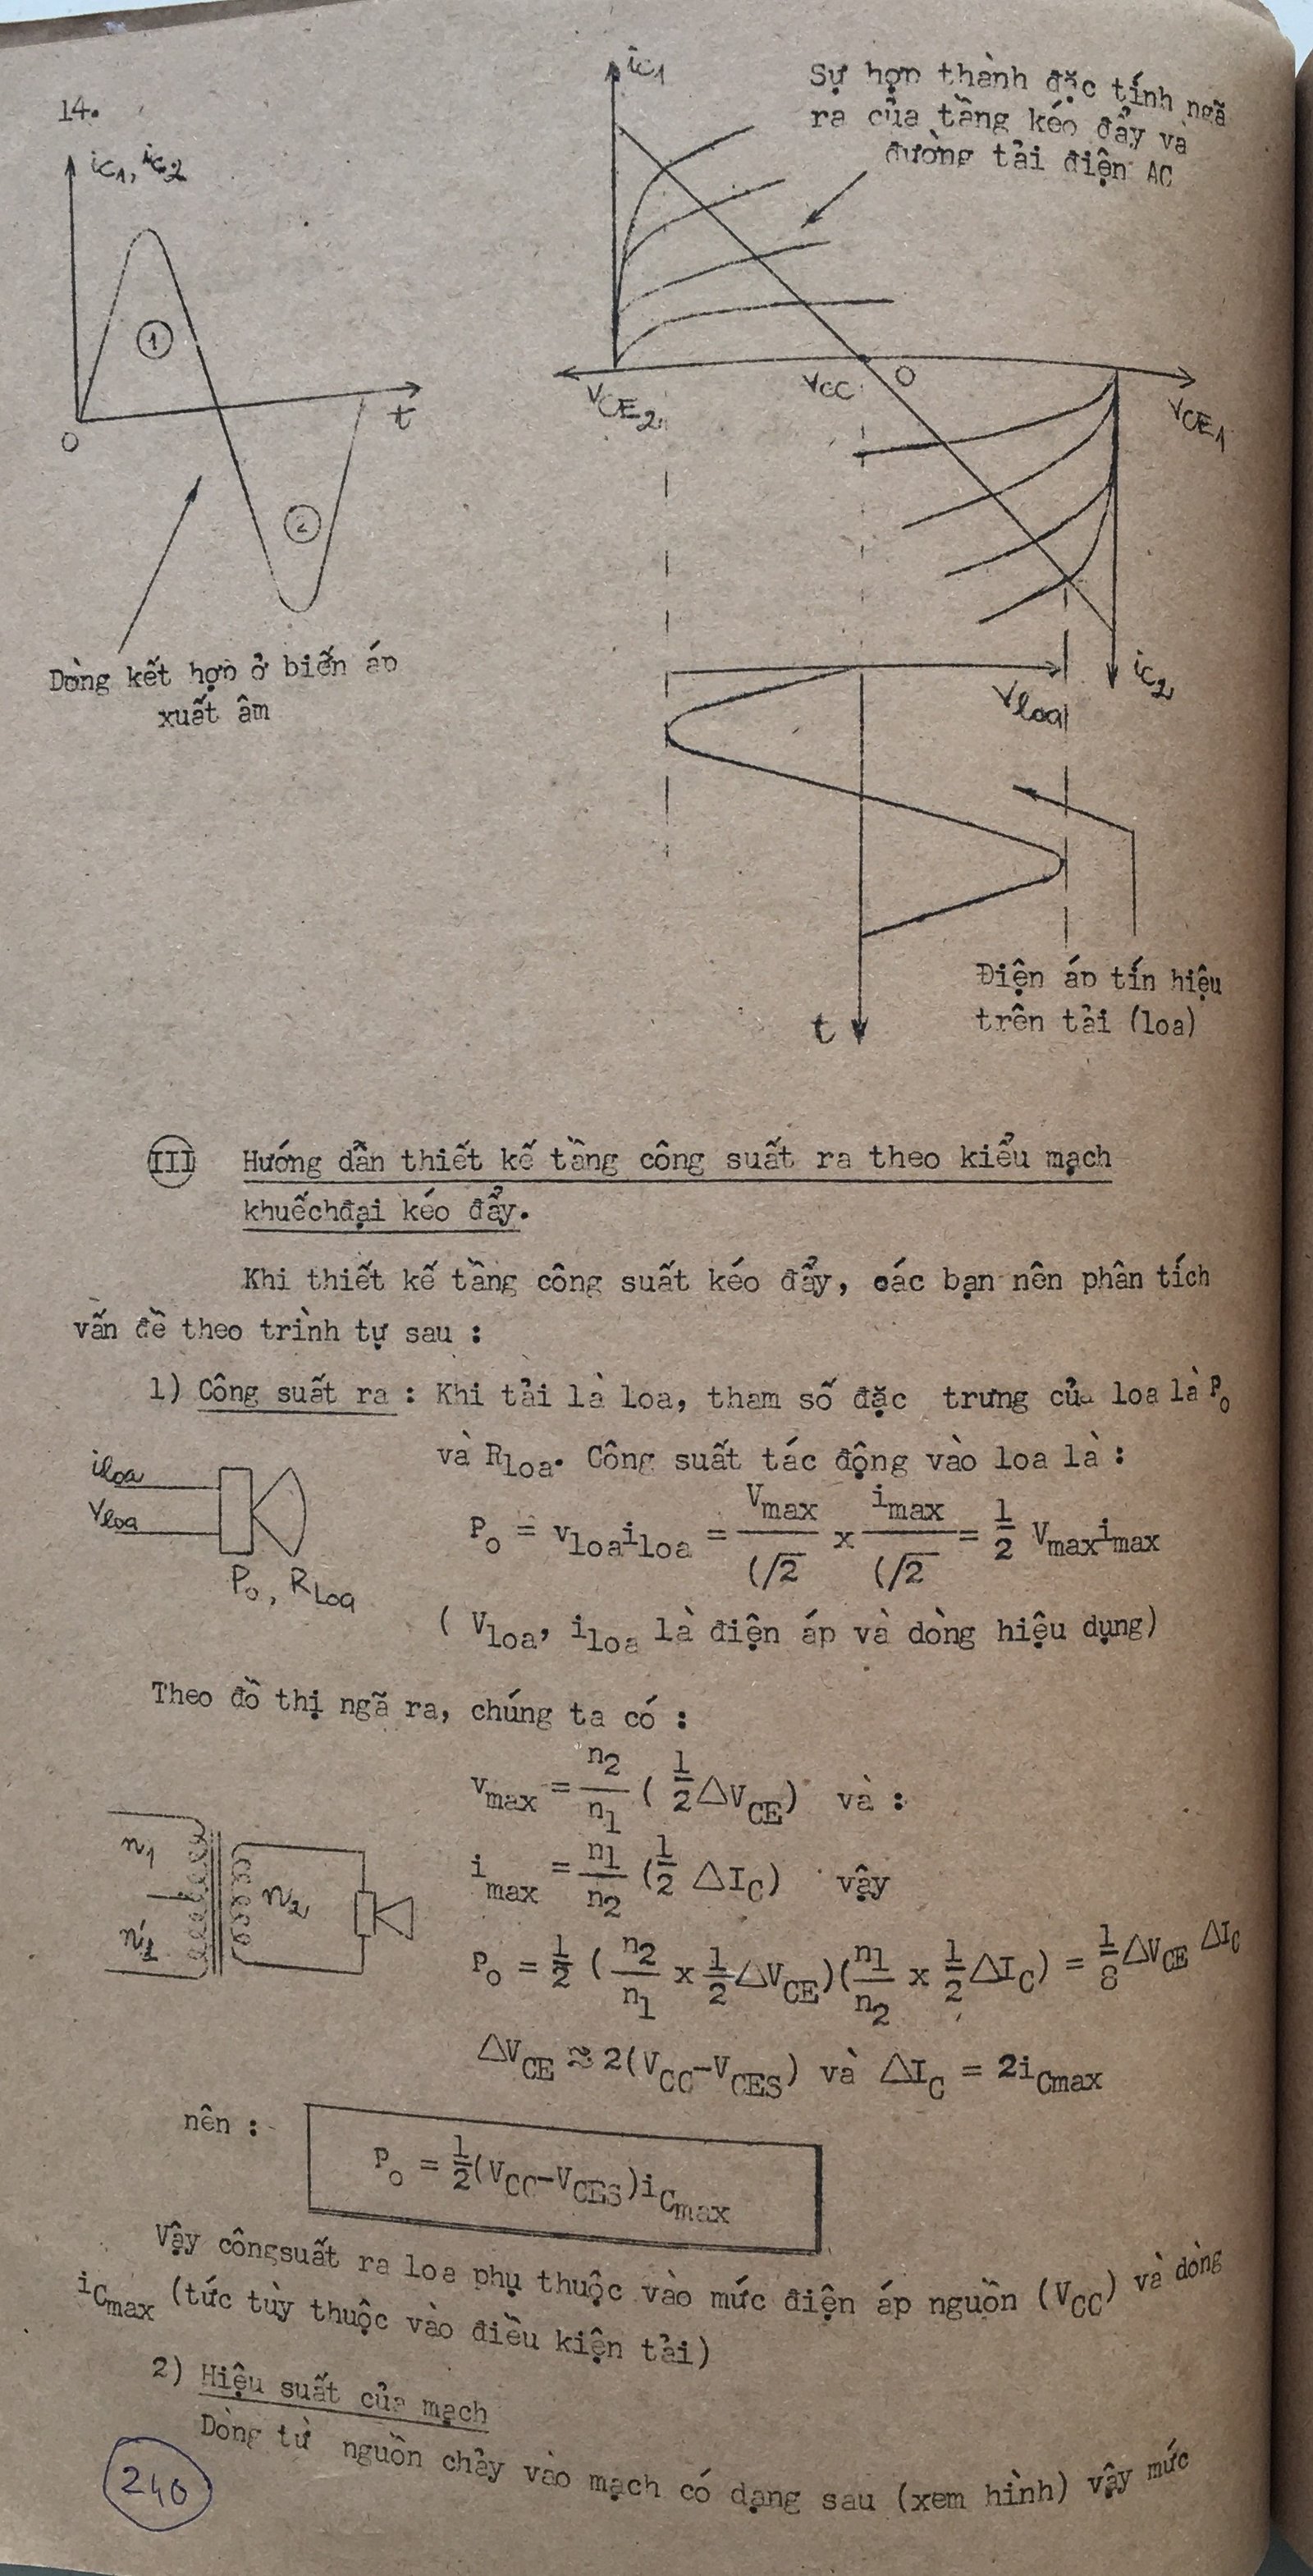 14.
ic1, ic2
1
2
0
t
Dòng kết hợp ở biến áp
xuất âm
ic1
Sự hợp thành đặc tính ngã
ra của tầng kéo đẩy và
đường tải điện AC
VCE2
VCC
O
VCE1
ic2
Vloa
t
Điện áp tín hiệu
trên tải (loa)
III Hướng dẫn thiết kế tầng công suất ra theo kiểu mạch
khuếchđại kéo đẩy.
Khi thiết kế tầng công suất kéo đẩy, các bạn nên phân tích
vấn đề theo trình tự sau :
1) Công suất ra : Khi tải là loa, tham số đặc trưng của loa là P0
và Rloa. Công suất tác động vào loa là :
iloa
Vloa
P0, RLoa
Po = vloailoa = Vmax/(√2 x imax/(√2 = 1/2 Vmaximax
( Vloa, iloa là điện áp và dòng hiệu dụng)
Theo đồ thị ngã ra, chúng ta có :
vmax = n2/n1 ( 1/2 △VCE) và :
imax = n1/n2 (1/2 △IC) vậy
n1
n'1
n2
Po = 1/2 ( n2/n1 x 1/2△VCE)(n1/n2 x 1/2△IC) = 1/8△VCE △IC
△VCE ≈ 2(VCC-VCES) và △IC = 2iCmax
nên :
Po = 1/2(VCC-VCES)iCmax
Vậy côngsuất ra loa phụ thuộc vào mức điện áp nguồn (VCC) và dòng
iCmax (tức tùy thuộc vào điều kiện tải)
2) Hiệu suất của mạch
Dòng từ nguồn chảy vào mạch có dạng sau (xem hình) vậy mức
240